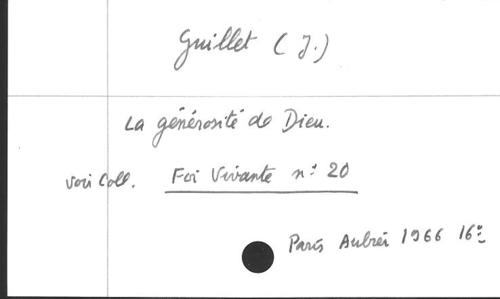 Guillet (J.)
La générosité de Dieu.
voir Coll. Foi Vivante n° 20
Paris Aubier 1966 16°